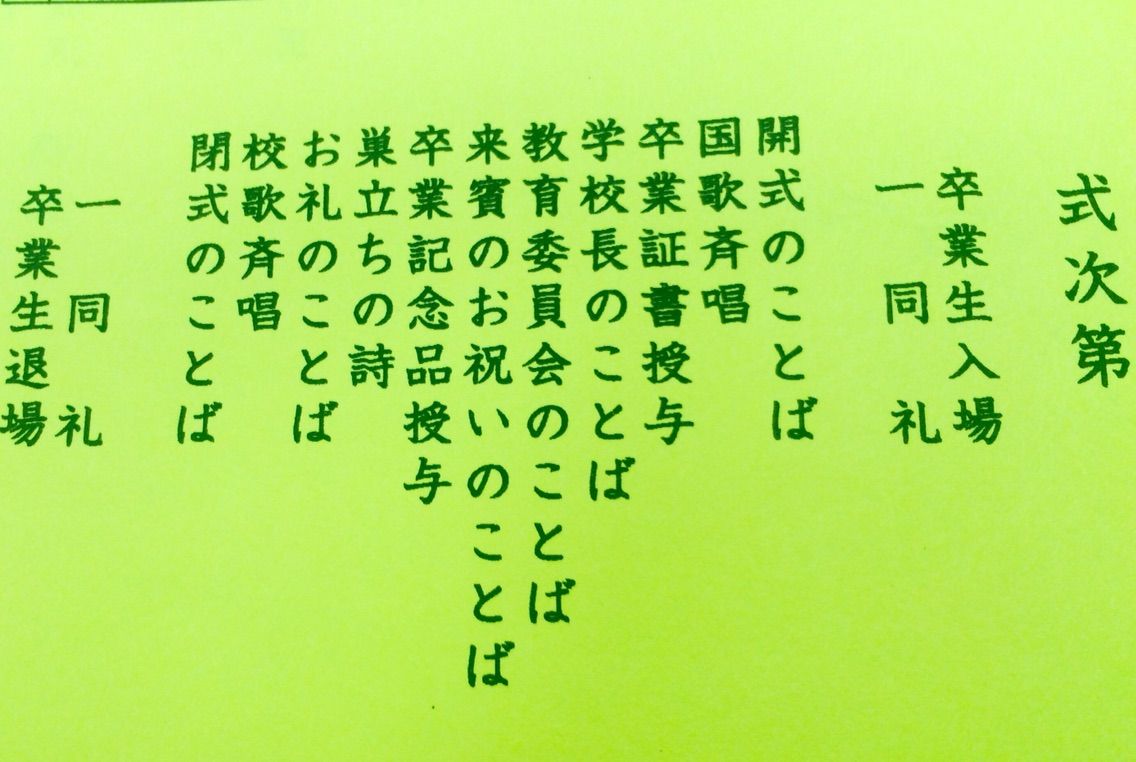 式次第
卒業生入場
一同礼
開式のことば
国歌斉唱
卒業証書授与
学校長のことば
教育委員会のことば
来賓のお祝いのことば
卒業記念品授与
巣立ちの詩
お礼のことば
校歌斉唱
閉式のことば
一同礼
卒業生退場